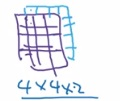 4×4×2